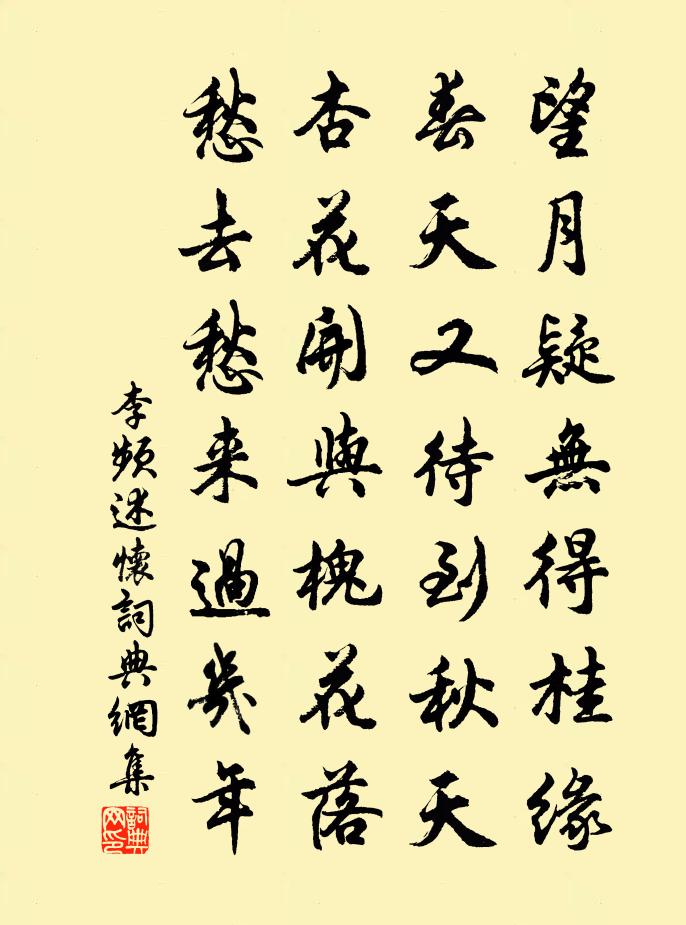 望月疑無得桂緣
春天又待到秋天
杏花開與槐花落
愁去愁来過幾年
李頻述懷詞典網集
詞典
网印